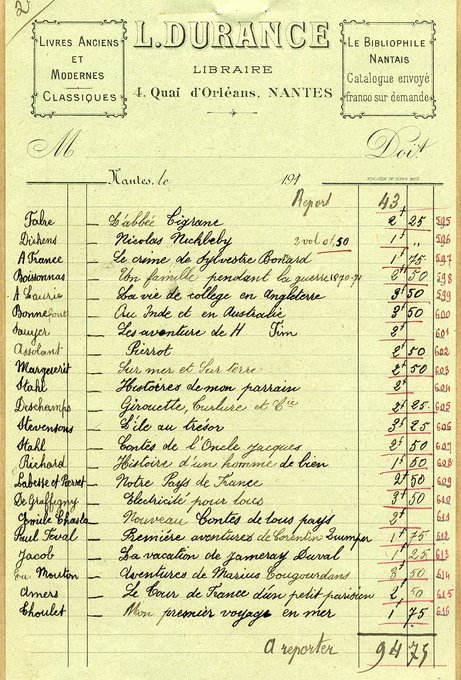 2
LIVRES ANCIENS
ET
MODERNES
CLASSIQUES
L. DURANCE
LIBRAIRE
4. Quai d'Orléans, NANTES
LE BIBLIOPHILE
NANTAIS
Catalogue envoyé
franco sur demande
M Doit
Nantes, le 191
Report 43
Fabre L'abbée Tigrane 2f 25 595
Dickens Nicolas Nickleby 2 vol à 1,50 1f „ 596
A France Le crime de Sylvestre Bonard 1f 75 597
Boissonnas Une famille pendant la guerre 1870-71 3f 50 598
A Laurie La vie de college en Angleterre 3f 50 599
Bonnefont Aux Inde et en Australie 3f 50 600
Les aventure de H Finn 3f 601
Assolant Pierrot 2f 50 602
Marguerit Sur mer et Sur terre 2f 50 603
Stahl Histoires de mon parrain 2f 604
Deschamps Girouette, et Cie 2f 25 605
Stevensons L'île au trésor 3f 25 606
Stahl Contes de l'Oncle Jacques 2f 50 607
Richard Histoire d'un homme de bien 1f 50 608
Labesse et Pierret Notre Pays de France 2f 50 609
De Graffigny Electricité pour tous 3f 50 610
Emile Chasle Nouveau Contes de tous pays 2f 611
Paul Feval Première aventures de Corentin Quimper 1f 75 612
Jacob La vacation de Jameray Duval 1f 25 613
Mouton Aventures de Marius Cougourdans 3f 50 614
Amers Le Tour de France d'un petit parisien 2f 50 615
Choulet Mon premier voyage en mer 1f 75 616
A reporter 94 75